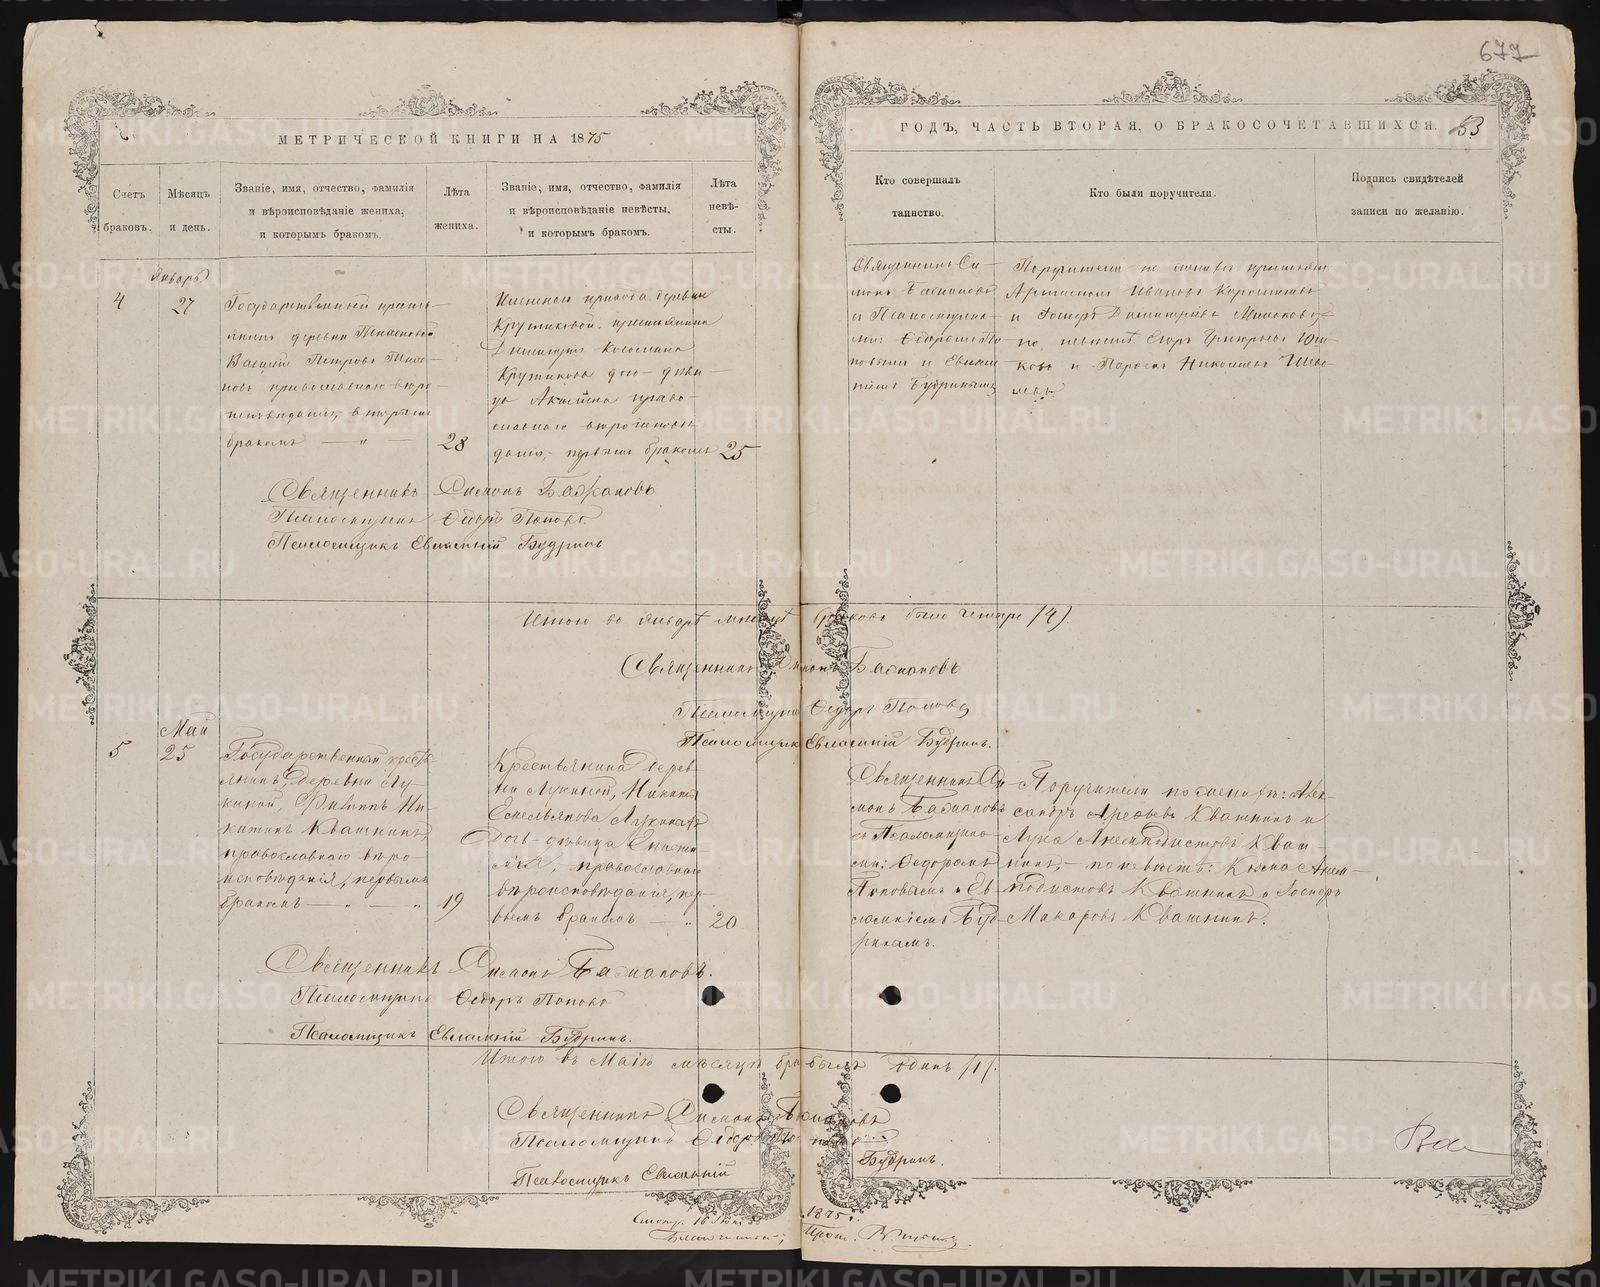 677
МЕТРИЧЕСКОЙ КНИГИ НА 1875
ГОДЪ, ЧАСТЬ ВТОРАЯ, О БРАКОСОЧЕТАВШИХСЯ.
53
Счетъ
браковъ.
Мѣсяцъ
и день.
Званіе, имя, отчество, фамилія
и вѣроисповѣданіе жениха,
и которымъ бракомъ.
Лѣта
жениха.
Званіе, имя, отчество, фамилія
и вѣроисповѣданіе невѣсты,
и которымъ бракомъ.
Лѣта
невѣ-
сты.
Кто совершалъ
таинство.
Кто были поручители.
Подпись свидѣтелей
записи по желанію.
4
Январь
27
Государственный кресть-
янинъ деревни
Василій Петровъ
православнаго вѣро-
исповѣданія, вторымъ
бракомъ — „ —
28
прихода деревни
Крутиковой крестьянина
Димитрія Косьмина
Крутикова дочь — дѣви-
ца Акилина право-
славнаго вѣроисповѣ-
данія, первымъ бракомъ
25
Священникъ Си-
монъ Бажановъ
съ Псаломщика-
ми: Ѳедоромъ По-
повымъ и Евлам-
піемъ Будринымъ
Поручители по женихѣ крестьяне
Ивановъ
и Димитріевъ
по невѣстѣ Егоръ Григорьевъ
и Николаевъ
Священникъ Симонъ Бажановъ
Псаломщикъ Ѳедоръ Поповъ
Псаломщикъ Евлампій Будринъ
Итого въ Январѣ мѣсяцѣ браковъ было четыре /4/.
Священникъ Симонъ Бажановъ
Псаломщикъ Ѳедоръ Поповъ
Псаломщикъ Евлампій Будринъ.
5
Май
25
Государственный кресть-
янинъ, деревни Лу-
киной, Филиппъ Ни-
китинъ Квашнинъ,
православнаго вѣро-
исповѣданія, первымъ
бракомъ — „ — „
19
Крестьянина дерев-
ни Лукиной, Никиты
Емельянова Лукина
дочь — дѣвица
православнаго
вѣроисповѣданія, пер-
вымъ бракомъ — „
20
Священникъ Си-
монъ Бажановъ
съ Псаломщика-
ми: Ѳедоромъ
Поповымъ и Ев-
лампіемъ Буд-
ринымъ.
Поручители по женихѣ: Алек-
сандръ Квашнинъ и
Лука Анемподистовъ Кваш-
нинъ, — по невѣстѣ: Козма Анем-
подистовъ Квашнинъ и
Макаровъ Квашнинъ.
Священникъ Симонъ Бажановъ.
Псаломщикъ Ѳедоръ Поповъ
Псаломщикъ Евлампій Будринъ.
Итого въ Маіѣ мѣсяцѣ бракъ былъ Одинъ /1/.
Священникъ Симонъ Бажановъ
Псаломщикъ Ѳедоръ Поповъ
Псаломщикъ Евлампій Будринъ.
16 1875 г.
METRIKI.GASO-URAL.RU